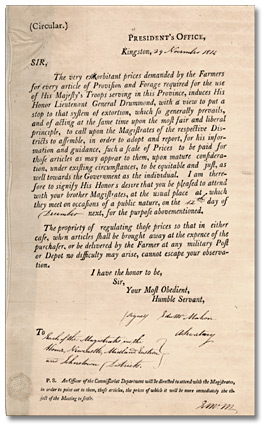 (Circular.)
PRESIDENT'S OFFICE,
Kingston, 29 November 1814
SIR,
The very exorbitant prices demanded by the Farmers
for every article of Provision and Forage required for the use
of His Majesty's Troops serving in this Province, induces His
Honor Lieutenant General Drummond, with a view to put a
stop to that system of extortion, which so generally prevails,
and of acting at the same time upon the most fair and liberal
principle, to call upon the Magistrates of the respective Dis-
tricts to assemble, in order to adopt and report, for his infor-
mation and guidance, such a scale of Prices to be paid for
those articles as may appear to them, upon mature consider-
ation, under existing circumstances, to be equitable and just, as
well towards the Government as the individual. I am there-
fore to signify His Honor's desire that you be pleased to attend
with your brother Magistrates, at the usual place at which
they meet on occasions of a public nature, on the 12th day of
December next, for the purpose abovementioned.
The propriety of regulating those prices so that in either
case, when articles shall be brought away at the expence of the
purchaser, or be delivered by the Farmer at any military Post
or Depot no difficulty may arise, cannot escape your obser-
vation.
I have the honor to be,
Sir,
Your Most Obedient,
Humble Servant,
(signed) Edw McMahon
To
each of the Magistrates in the
Home, Newcastle, Midland
and Johnstown Districts
P. S. An Officer of the Commissariat Department will be directed to attend with the Magistrates,
in order to point out to them, those articles, the prices of which it will be more immediately the ob-
ject of the Meeting to settle.